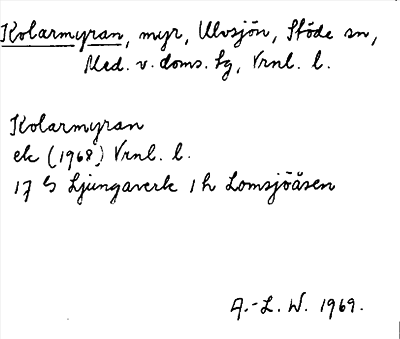 Kolarmyran, myr, Ulvsjön, Stöde sn,
Med. v. doms. tg, Vrnl. l.
Kolarmyran
ek (1968) Vrnl. l.
17 G Ljungaverk 1 h Lomsjöåsen
A.-L. W. 1969.